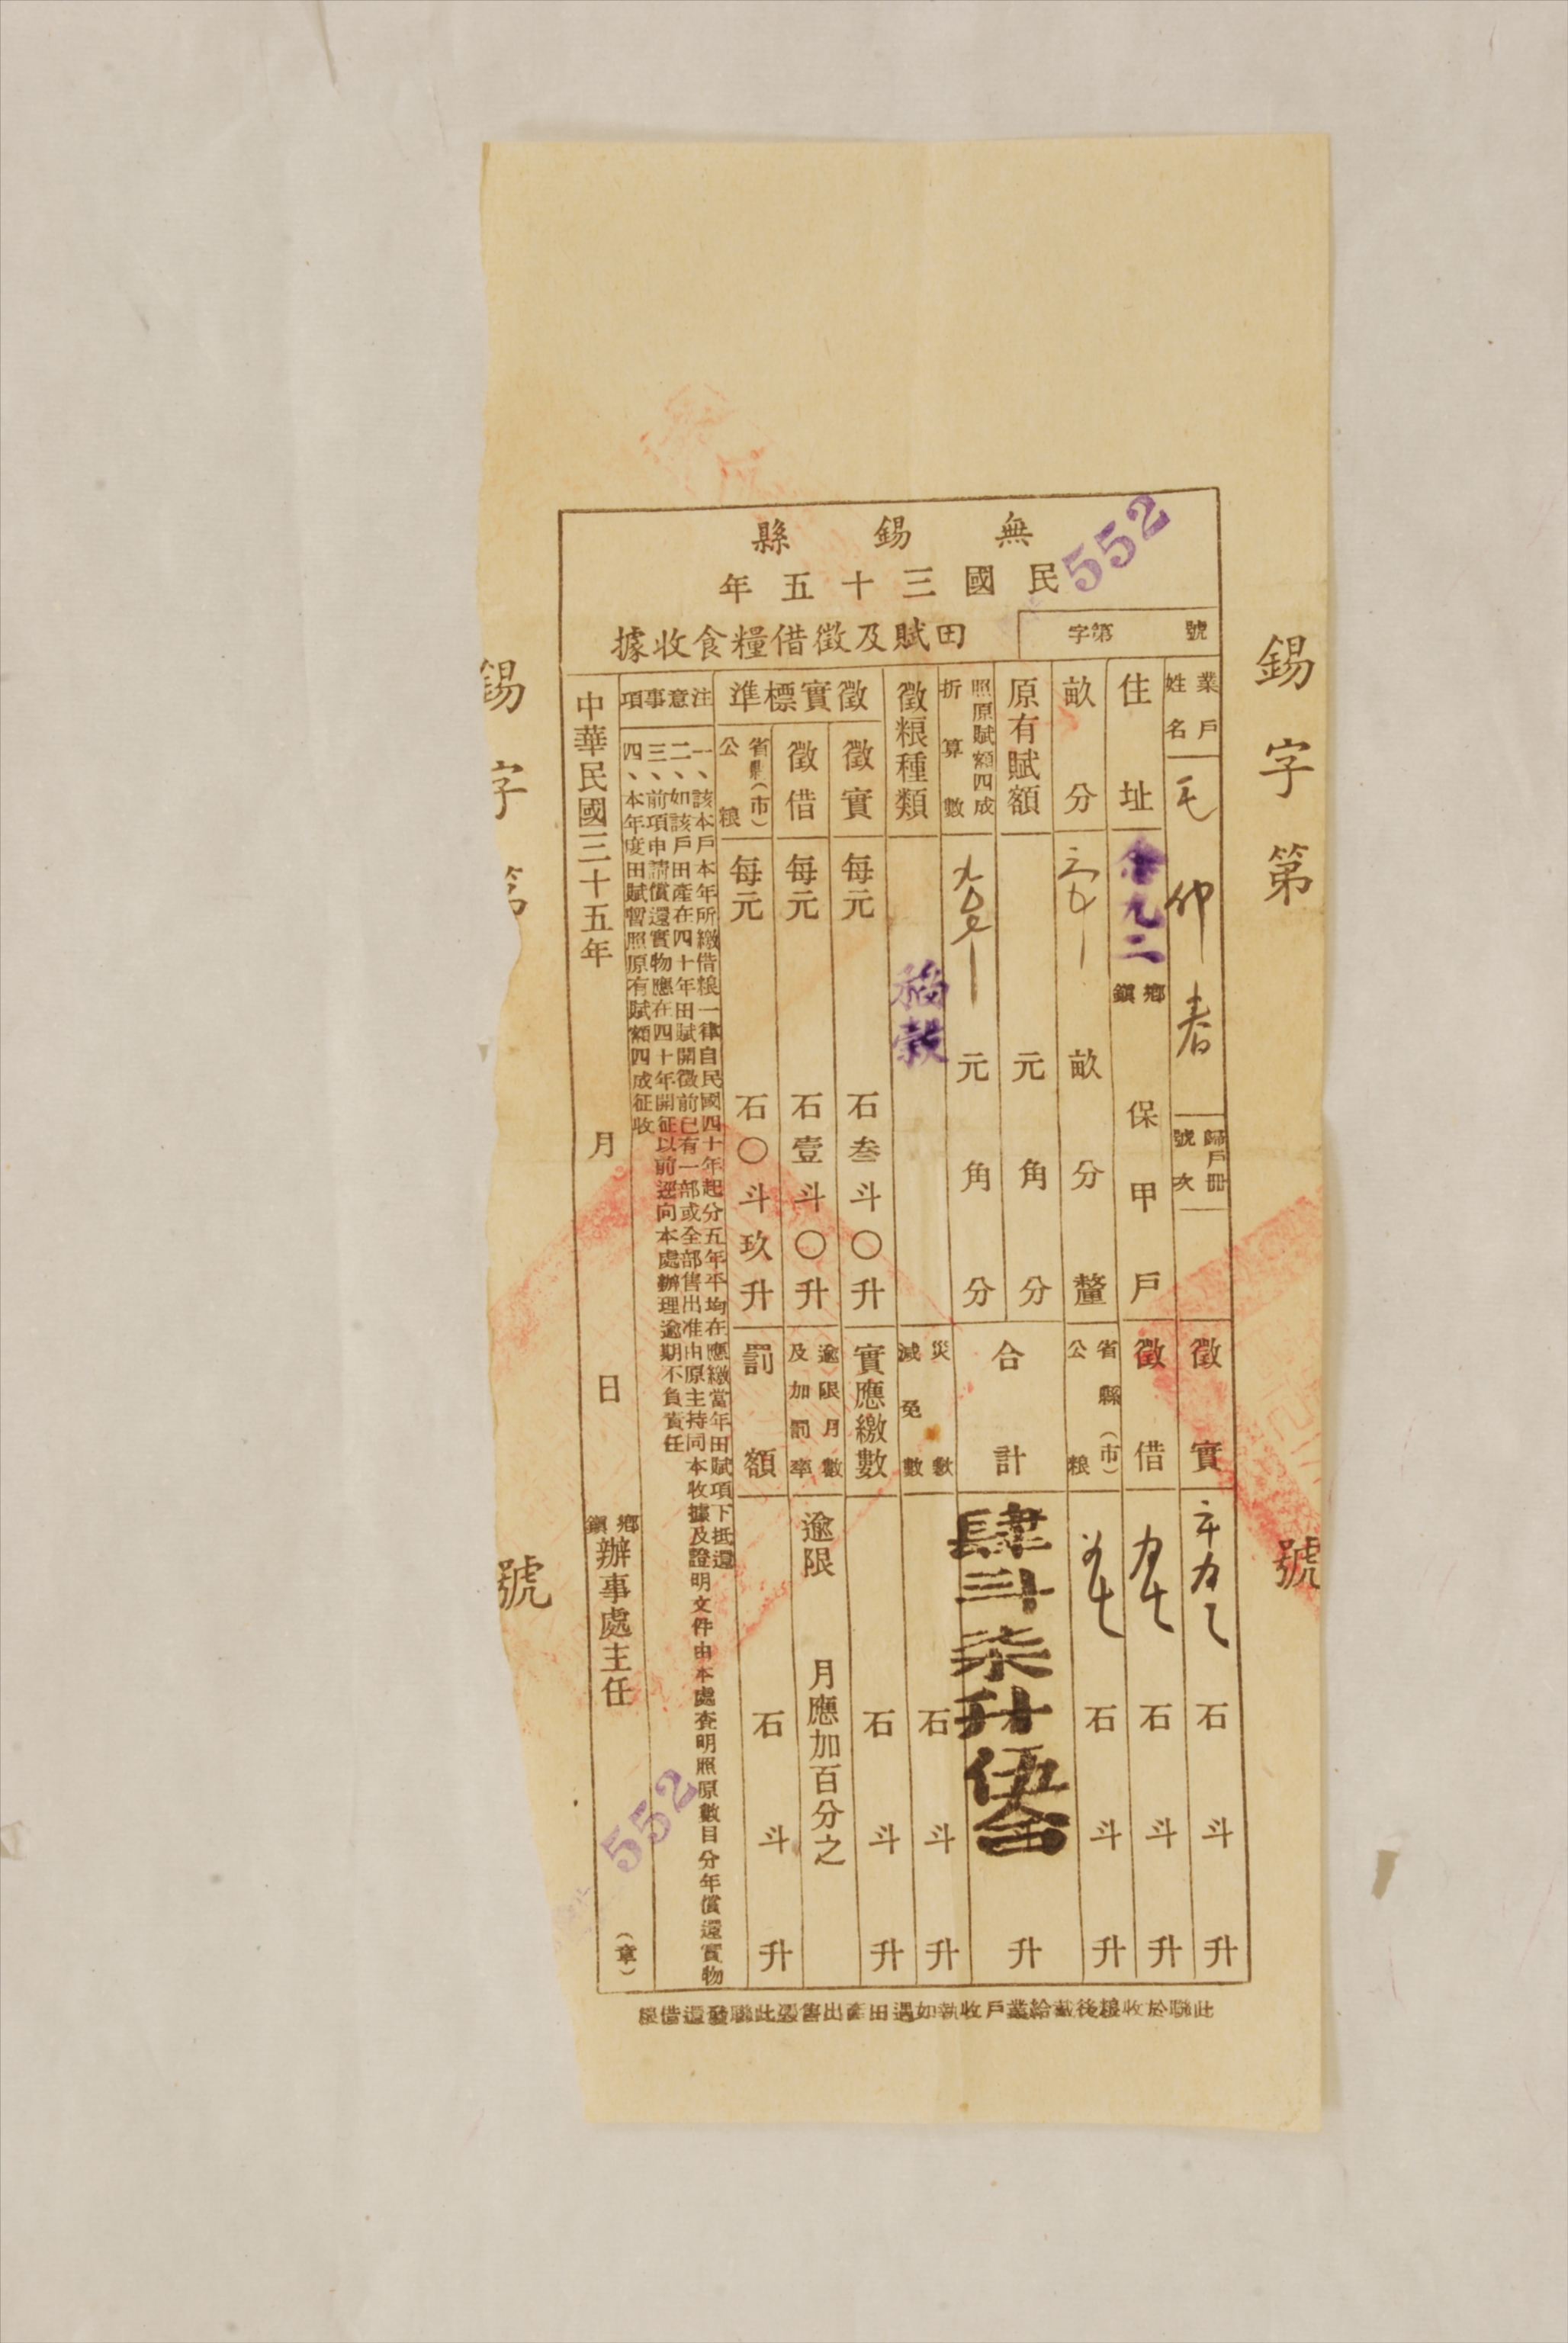 無錫縣
民國三十五年
田賦及徵借糧食收據
字第 號
552
錫字第 號
業戶姓名 毛仰春 歸戶冊號次
徵實 石斗升
住址 九二 鄉鎮 保甲戶
徵借 石斗升
畝分 畝分釐
省縣(市)公粮 石斗升
原有賦額 元角分
照原賦額四成折算數 元角分
合計 肆斗柒升伍合 升
徵粮種類 稻穀
災減免數 石斗升
徵實標準
徵實 每元 石叁斗〇升
實應繳數 石斗升
徵借 每元 石壹斗〇升
逾限月數及加罰率 逾限 月應加百分之
省縣(市)公粮 每元 石〇斗玖升
罰額 石斗升
注意事項
一、該本戶本年所繳借粮一律自民國四十年起分五年平均在應繳當年田賦項下抵還
二、如該戶田產在四十年田賦開徵前已有一部或全部售出准由原主持同本收據及證明文件由本處查明照原數目分年償還實物
三、前項申請償還實物應在四十年開征以前逕向本處辦理逾期不負責任
四、本年度田賦暫照原有賦額四成征收
中華民國三十五年 月 日 鄉鎮辦事處主任 (章)
552
錫字第 號
此聯於收粮後截給業戶收執如遇田產出售張此聯發還借粮